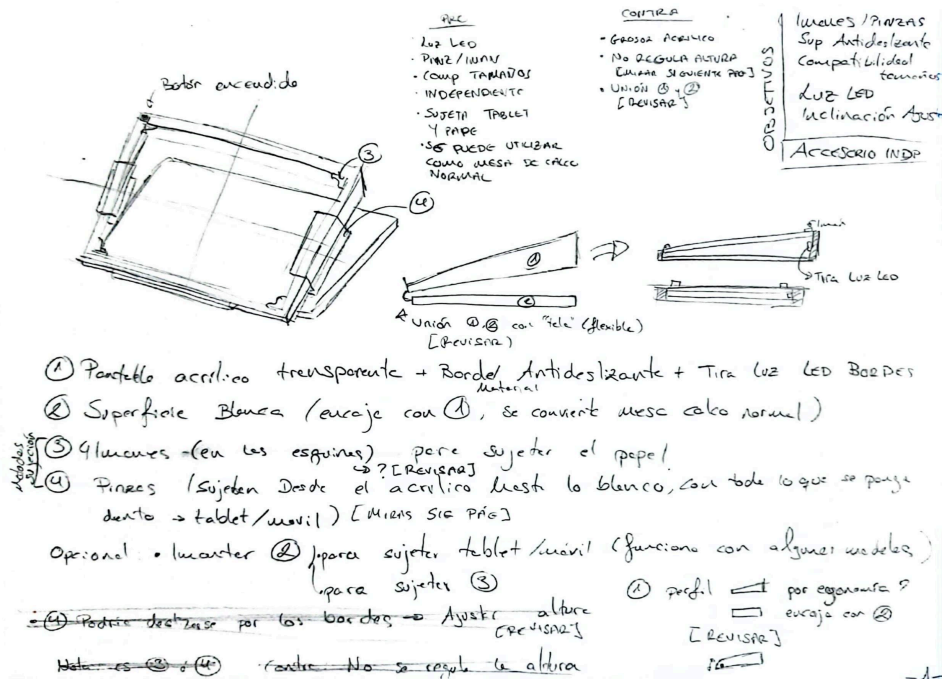 PRO
· LUZ LED
· PINZ/IMAN
· COMP TAMAÑOS
· INDEPENDIENTE
· SUJETA TABLET
Y PAPE
· SE PUEDE UTILIZAR
COMO MESA DE CALCO
NORMAL
CONTRA
· GROSOR ACRILICO
· NO REGULA ALTURA
[MIRAR SIGUIENTE PAG]
· UNIÓN ① y ②
[REVISAR]
OBJETIVOS
Imanes / PINZAS
Sup Antideslizante
Compatibilidad
tamaños
LUZ LED
Inclinación Ajust
ACCESORIO INDP
Botón encendido
③
④
①
②
Unión ①,② con "tela" (flexible)
[REVISAR]
Iman
Tira LUZ LED
① Pantalla acrílico transparente + Borde Antideslizante + Tira LUZ LED BORDES
Material
② Superficie Blanca (encaje con ①, se convierte mesa calco normal)
Métodos
Sujeción
③ 4 Imanes - (en las esquinas) para sujetar el papel
→ ? [REVISAR]
④ Pinzas (Sujetan Desde el acrílico hasta lo blanco, con todo lo que se ponga
dentro → tablet/movil) [MIRAR SIG PÁG]
Opcional: · Imanes ② para sujetar tablet/móvil (funciona con algunos modelos)
para sujetar ③
④ Podría deslizarse por los bordes → Ajustar altura
[REVISAR]
Nota: es ③ ó ④ Contra No se regula la altura
① perfil por ergonomía?
encaja con ②
[REVISAR]
-1-